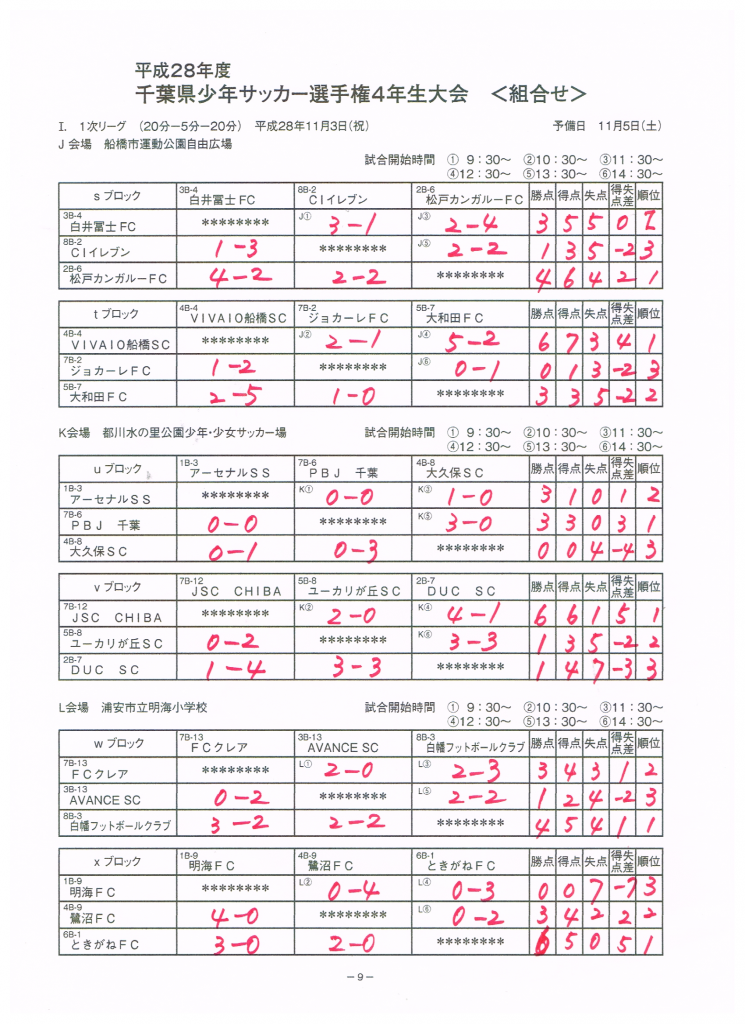 平成28年度
千葉県少年サッカー選手権4年生大会 <組合せ>
I. 1次リーグ (20分-5分-20分) 平成28年11月3日(祝) 予備日 11月5日(土)
J会場 船橋市運動公園自由広場
試合開始時間 ① 9:30~ ②10:30~ ③11:30~
④12:30~ ⑤13:30~ ⑥14:30~
sブロック 3B-4 白井冨士FC 8B-2 CIイレブン 2B-6 松戸カンガルーFC 勝点 得点 失点 得失点差 順位
3B-4 白井冨士FC ******** J① 3-1 J③ 2-4 3 5 5 0 2
8B-2 CIイレブン 1-3 ******** J⑤ 2-2 1 3 5 -2 3
2B-6 松戸カンガルーFC 4-2 2-2 ******** 4 6 4 2 1
tブロック 4B-4 VIVAIO船橋SC 7B-2 ジョカーレFC 5B-7 大和田FC 勝点 得点 失点 得失点差 順位
4B-4 VIVAIO船橋SC ******** J② 2-1 J④ 5-2 6 7 3 4 1
7B-2 ジョカーレFC 1-2 ******** J⑥ 0-1 0 1 3 -2 3
5B-7 大和田FC 2-5 1-0 ******** 3 3 5 -2 2
K会場 都川水の里公園少年・少女サッカー場 試合開始時間 ① 9:30~ ②10:30~ ③11:30~
④12:30~ ⑤13:30~ ⑥14:30~
uブロック 1B-3 アーセナルSS 7B-6 PBJ 千葉 4B-8 大久保SC 勝点 得点 失点 得失点差 順位
1B-3 アーセナルSS ******** K① 0-0 K③ 1-0 3 1 0 1 2
7B-6 PBJ 千葉 0-0 ******** K⑤ 3-0 3 3 0 3 1
4B-8 大久保SC 0-1 0-3 ******** 0 0 4 -4 3
vブロック 7B-12 JSC CHIBA 5B-8 ユーカリが丘SC 2B-7 DUC SC 勝点 得点 失点 得失点差 順位
7B-12 JSC CHIBA ******** K② 2-0 K④ 4-1 6 6 1 5 1
5B-8 ユーカリが丘SC 0-2 ******** K⑥ 3-3 1 3 5 -2 2
2B-7 DUC SC 1-4 3-3 ******** 1 4 7 -3 3
L会場 浦安市立明海小学校 試合開始時間 ① 9:30~ ②10:30~ ③11:30~
④12:30~ ⑤13:30~ ⑥14:30~
wブロック 7B-13 FCクレア 3B-13 AVANCE SC 8B-3 白幡フットボールクラブ 勝点 得点 失点 得失点差 順位
7B-13 FCクレア ******** L① 2-0 L③ 2-3 3 4 3 1 2
3B-13 AVANCE SC 0-2 ******** L⑤ 2-2 1 2 4 -2 3
8B-3 白幡フットボールクラブ 3-2 2-2 ******** 4 5 4 1 1
xブロック 1B-9 明海FC 4B-9 鷺沼FC 6B-1 ときがねFC 勝点 得点 失点 得失点差 順位
1B-9 明海FC ******** L② 0-4 L④ 0-3 0 0 7 -7 3
4B-9 鷺沼FC 4-0 ******** L⑥ 0-2 3 4 2 2 2
6B-1 ときがねFC 3-0 2-0 ******** 6 5 0 5 1
-9-